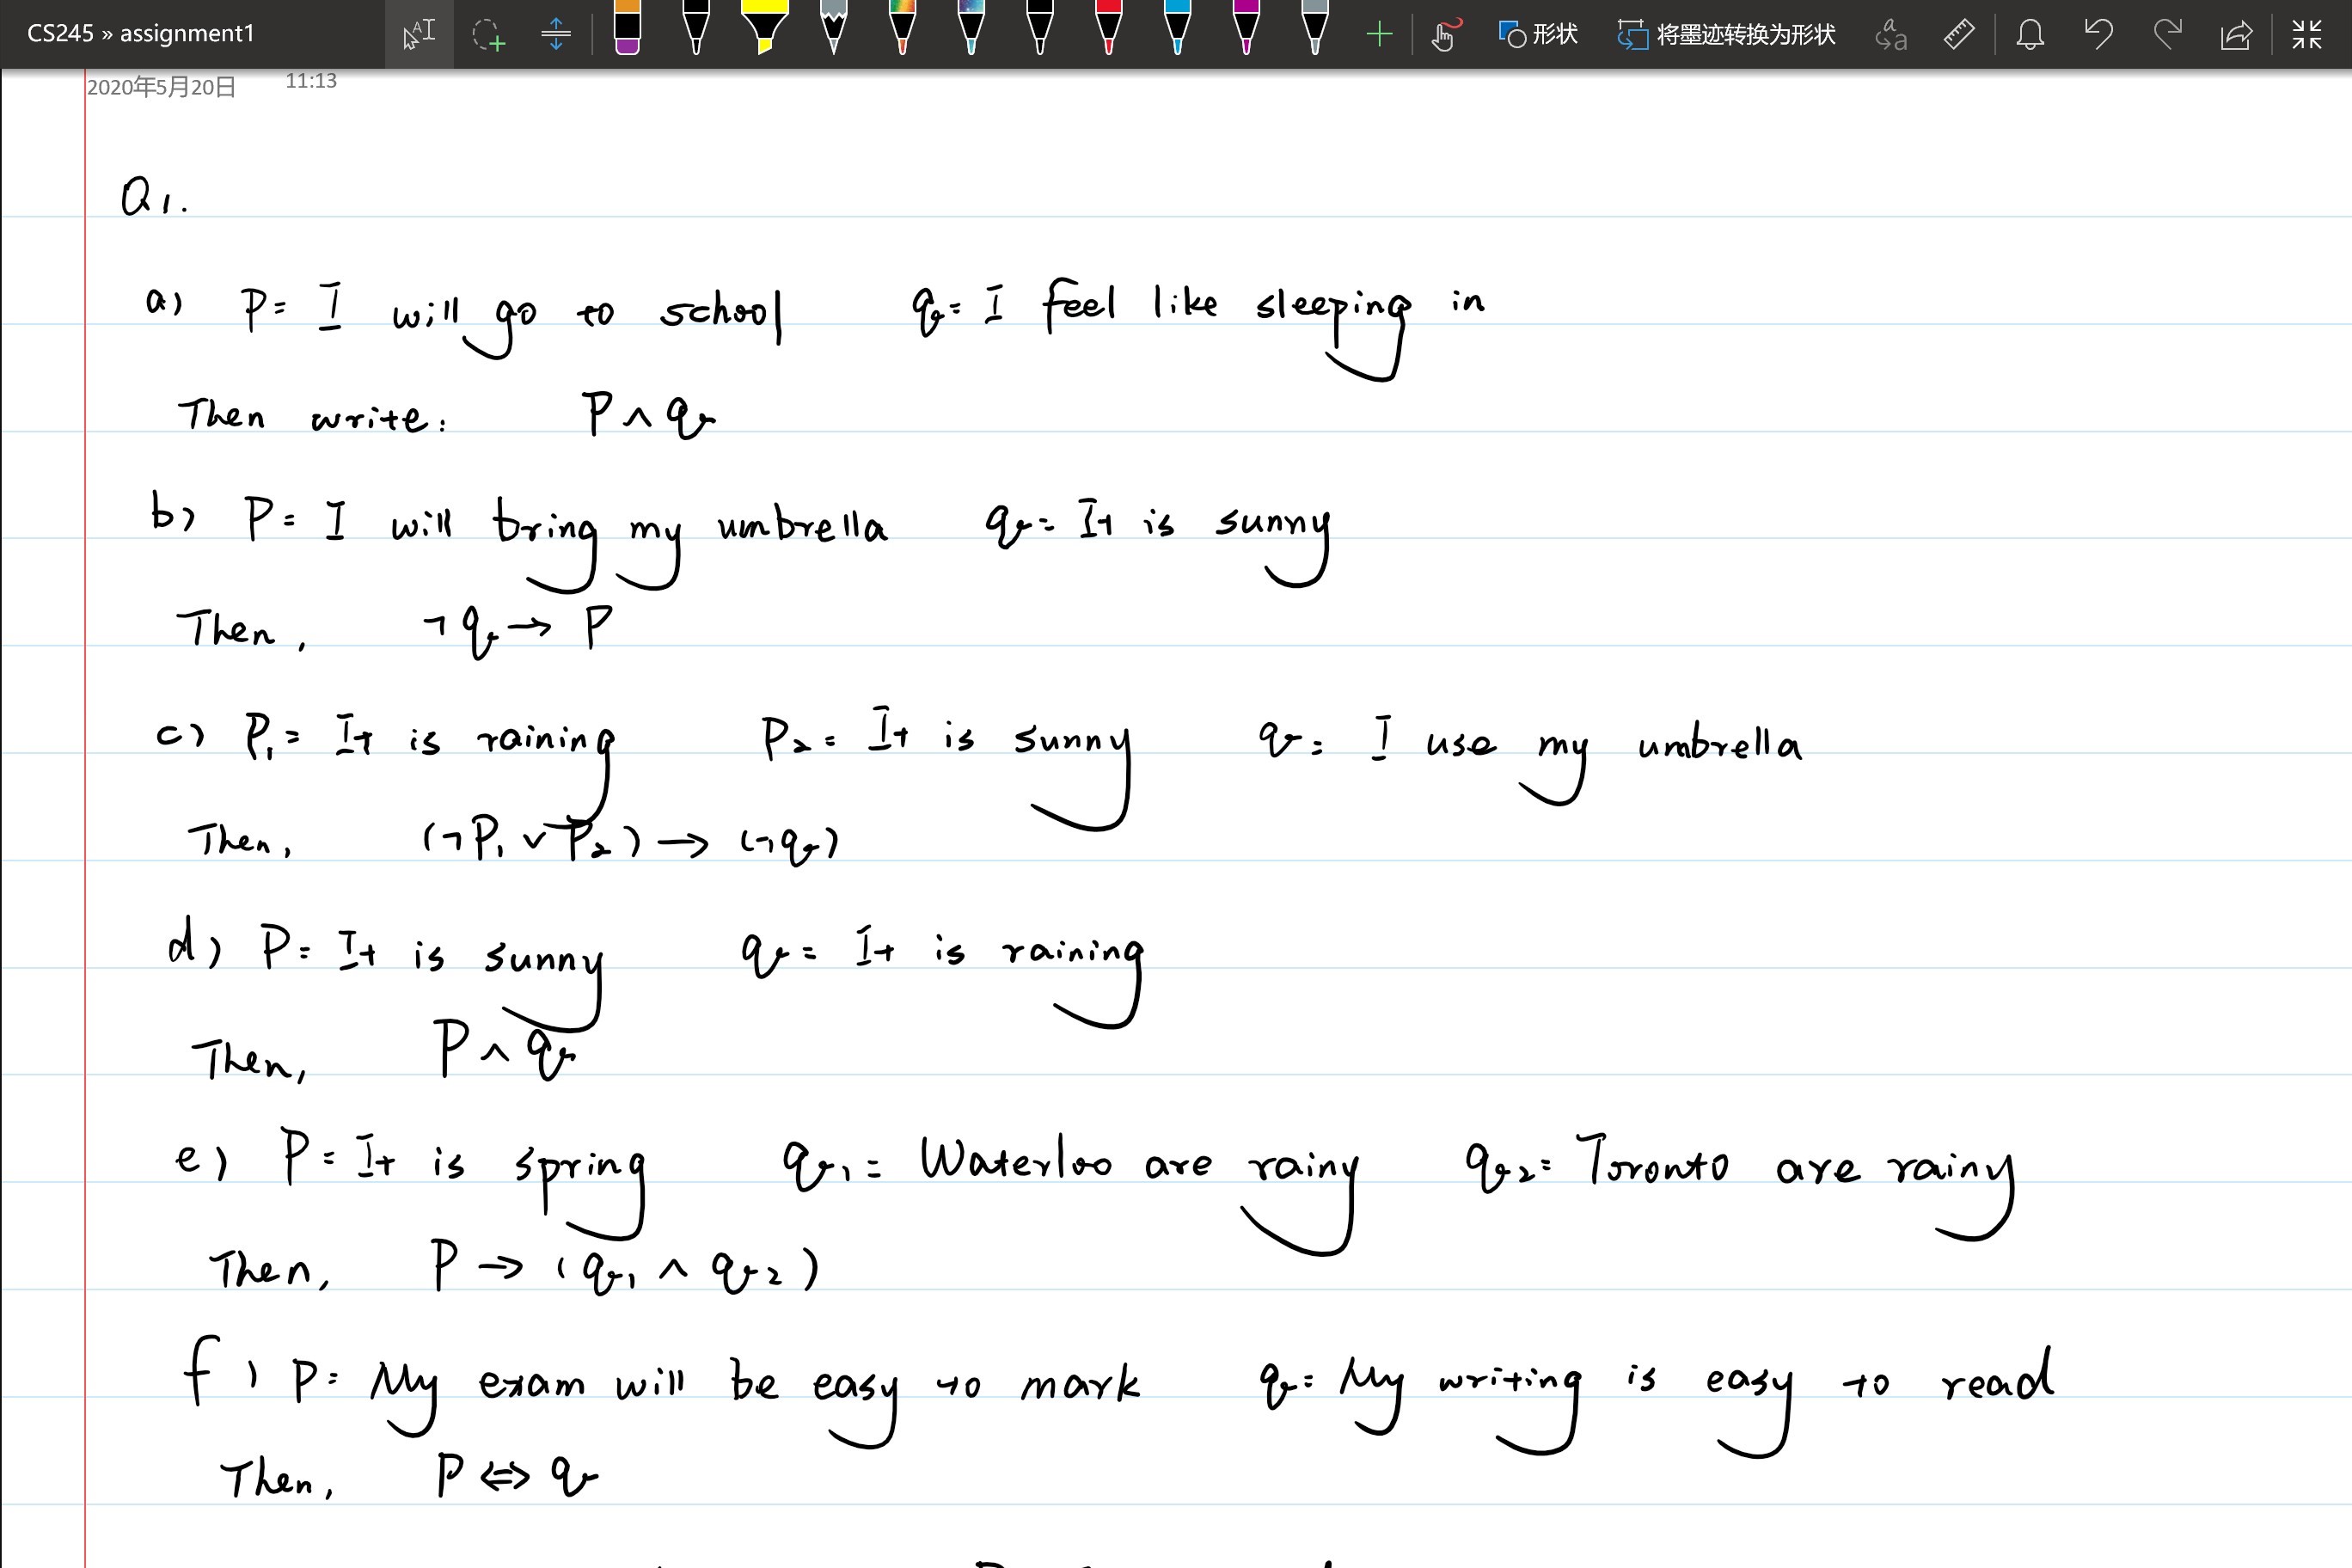 CS245 » assignment1
形状
将墨迹转换为形状
2020年5月20日 11:13
Q1.
a) P = I will go to school q = I feel like sleeping in
Then write: P ∧ q
b) P = I will bring my umbrella q = It is sunny
Then, ¬q → P
c) P₁ = It is raining P₂ = It is sunny q = I use my umbrella
Then, (¬P₁ ∨ P₂) → (¬q)
d) P = It is sunny q = It is raining
Then, P ∧ q
e) P = It is spring q₁ = Waterloo are rainy q₂ = Toronto are rainy
Then, P → (q₁ ∧ q₂)
f) P = My exam will be easy to mark q = My writing is easy to read
Then, P ⇔ q